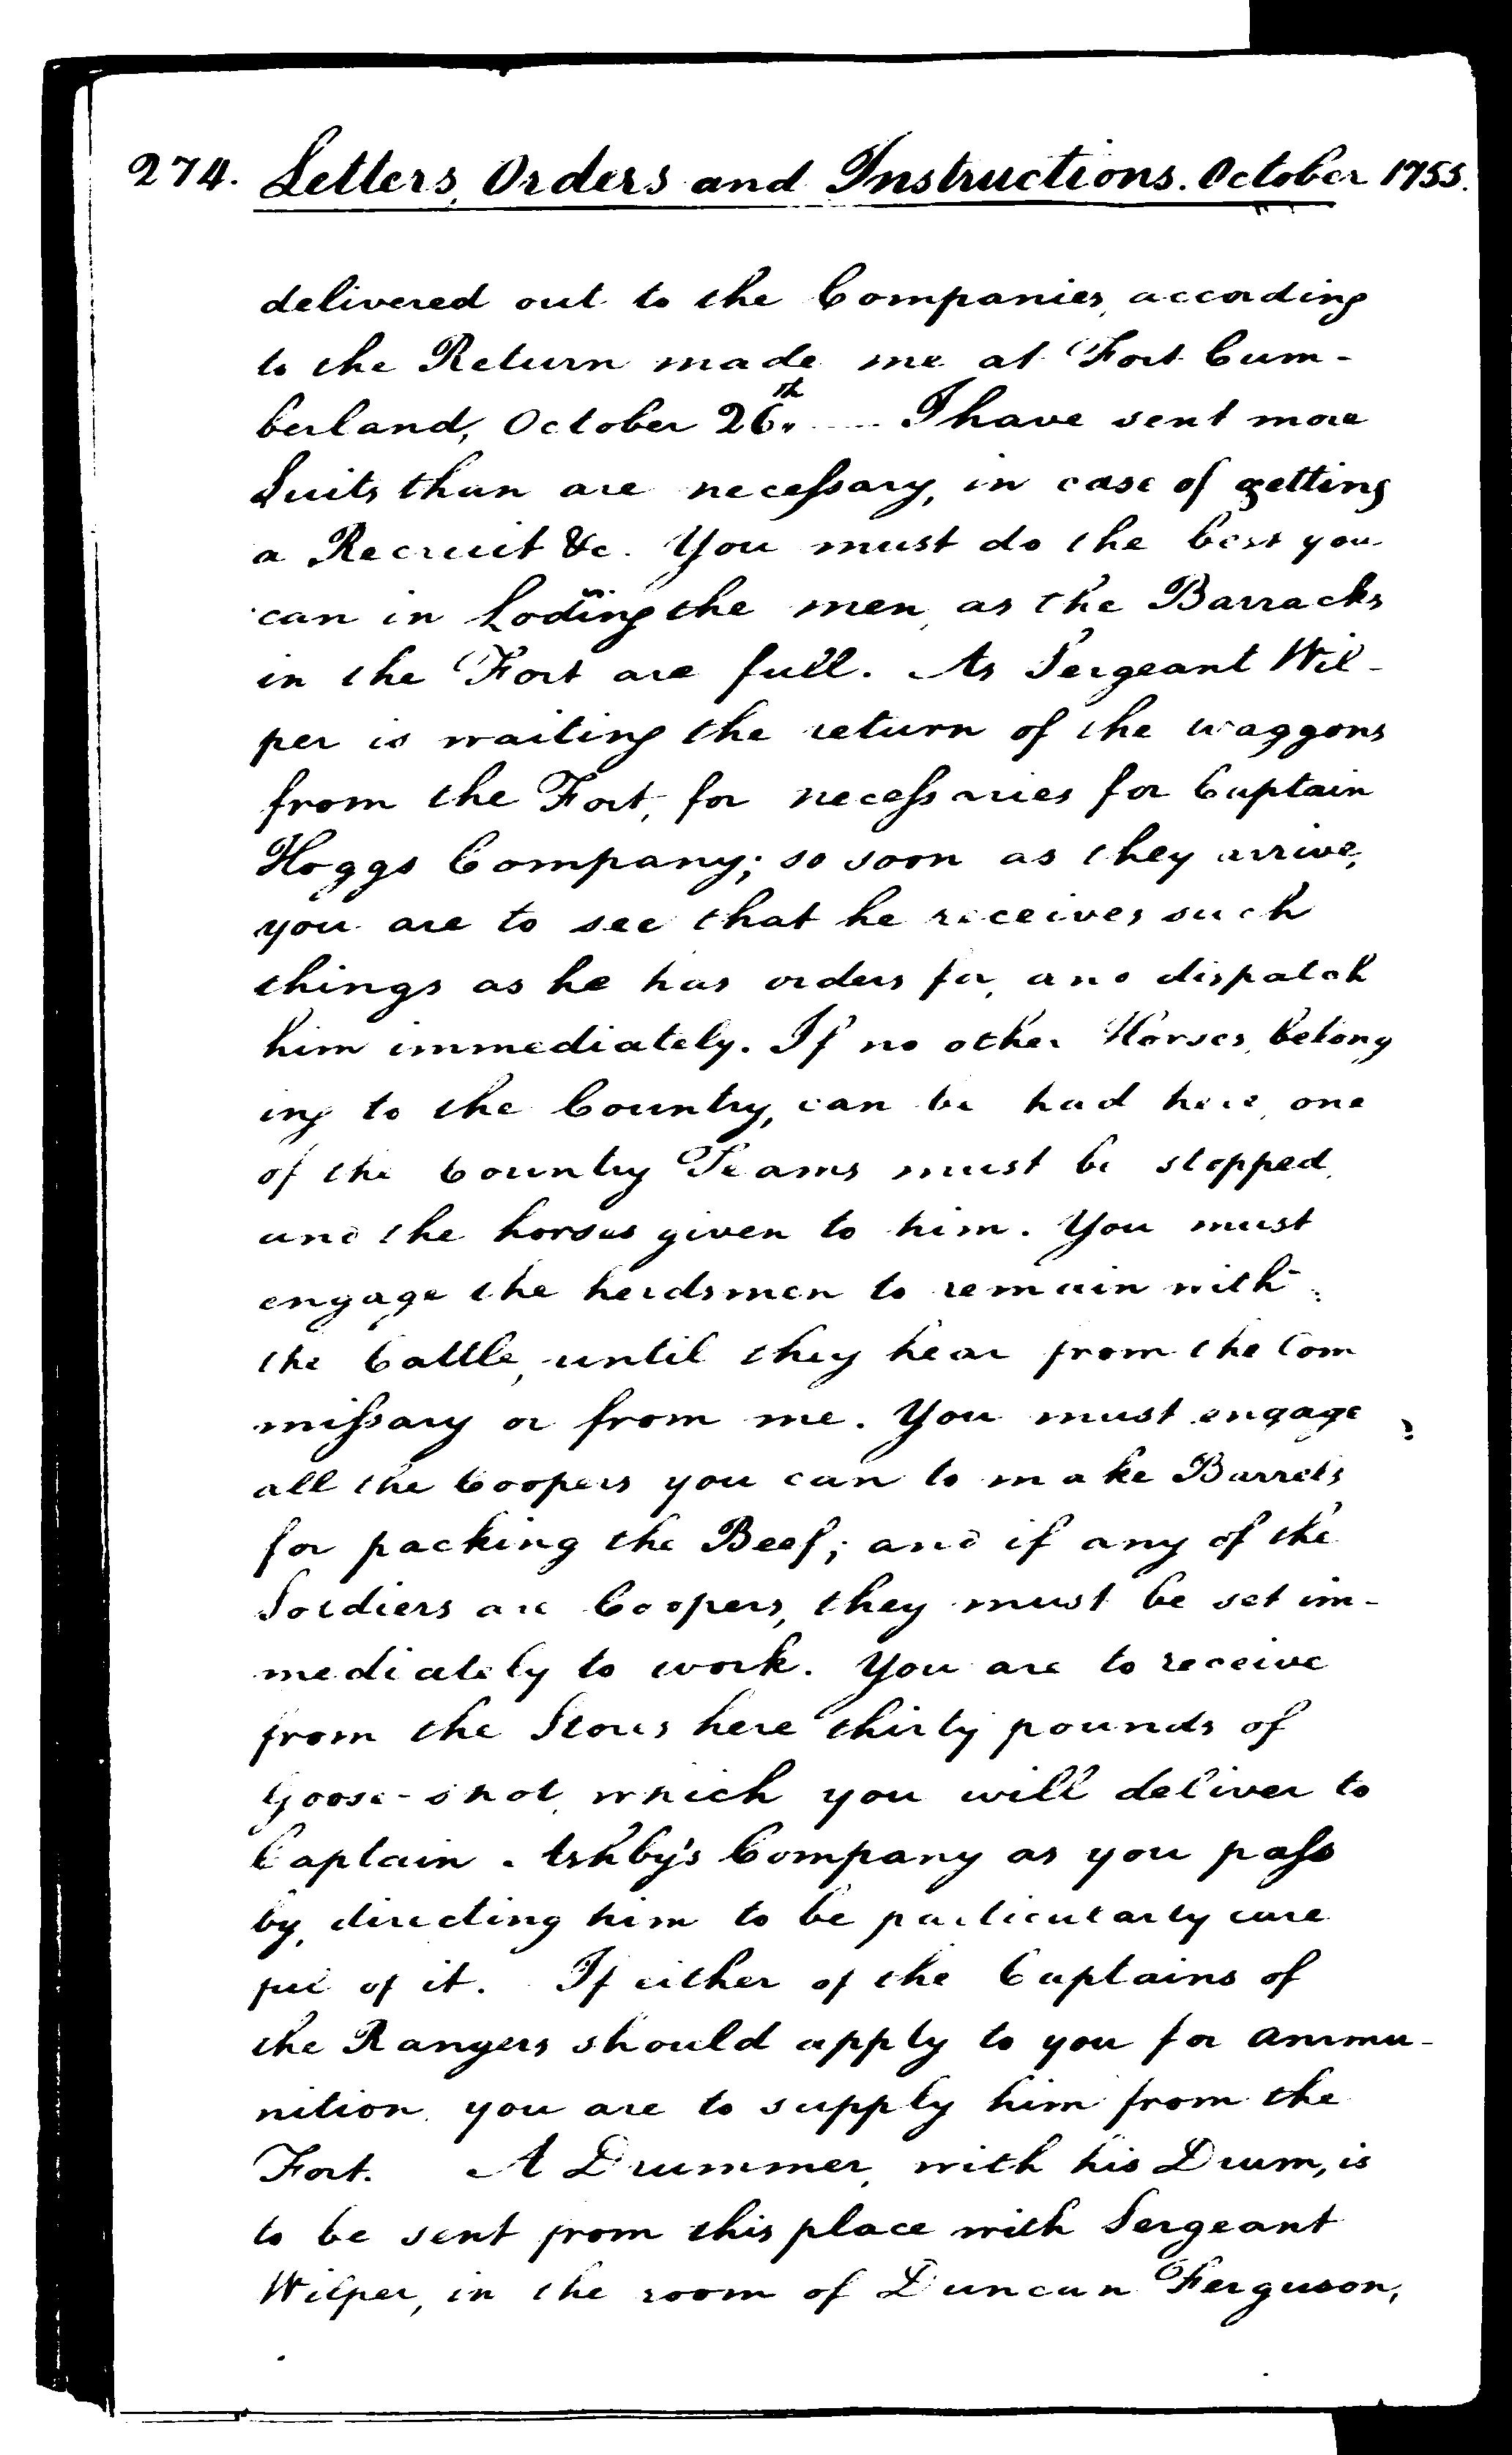 274. Letters, Orders and Instructions. October 1755.
delivered out to the Companies, according
to the Return made me at Fort Cum-
berland, October 26th. I have sent more
Suits than are necessary, in case of getting
a Recruit &c. You must do the best you
can in Loding the men, as the Barracks
in the Fort are full. As Sergeant Wil-
per is waiting the return of the waggons
from the Fort, for necessaries for Captain
Hoggs Company; so soon as they arrive,
you are to see that he receives such
things as he has orders for, and dispatch
him immediately. If no other Horses, belong
ing to the Country, can be had here, one
of the Country Teams must be stopped,
and the horses given to him. You must
engage the herdsmen to remain with
the Cattle, until they hear from the Com
missary or from me. You must engage
all the Coopers you can to make Barrels
for packing the Beef; and if any of the
Soldiers are Coopers, they must be set im-
mediately to work. You are to receive
from the Stores here thirty pounds of
Goose-shot, which you will deliver to
Captain Ashby's Company as you pass
by, directing him to be particularly care
ful of it. If either of the Captains of
the Rangers should apply to you for ammu-
nition, you are to supply him from the
Fort. A Drummer, with his Drum, is
to be sent from this place with Sergeant
Wilper, in the room of Duncan Ferguson,